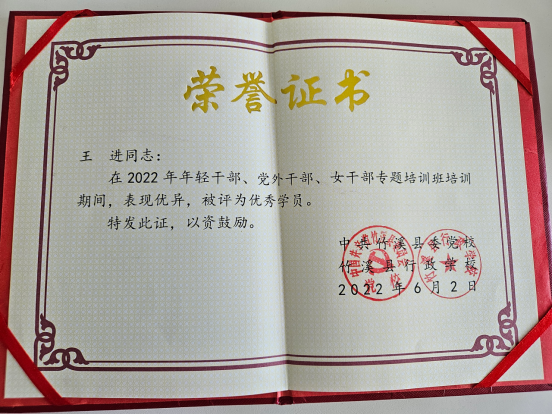 荣誉证书
王 进同志：
在2022年年轻干部、党外干部、女干部专题培训班培训
期间，表现优异，被评为优秀学员。
特发此证，以资鼓励。
中共竹溪县委党校
竹溪县行政学校
2022年6月2日